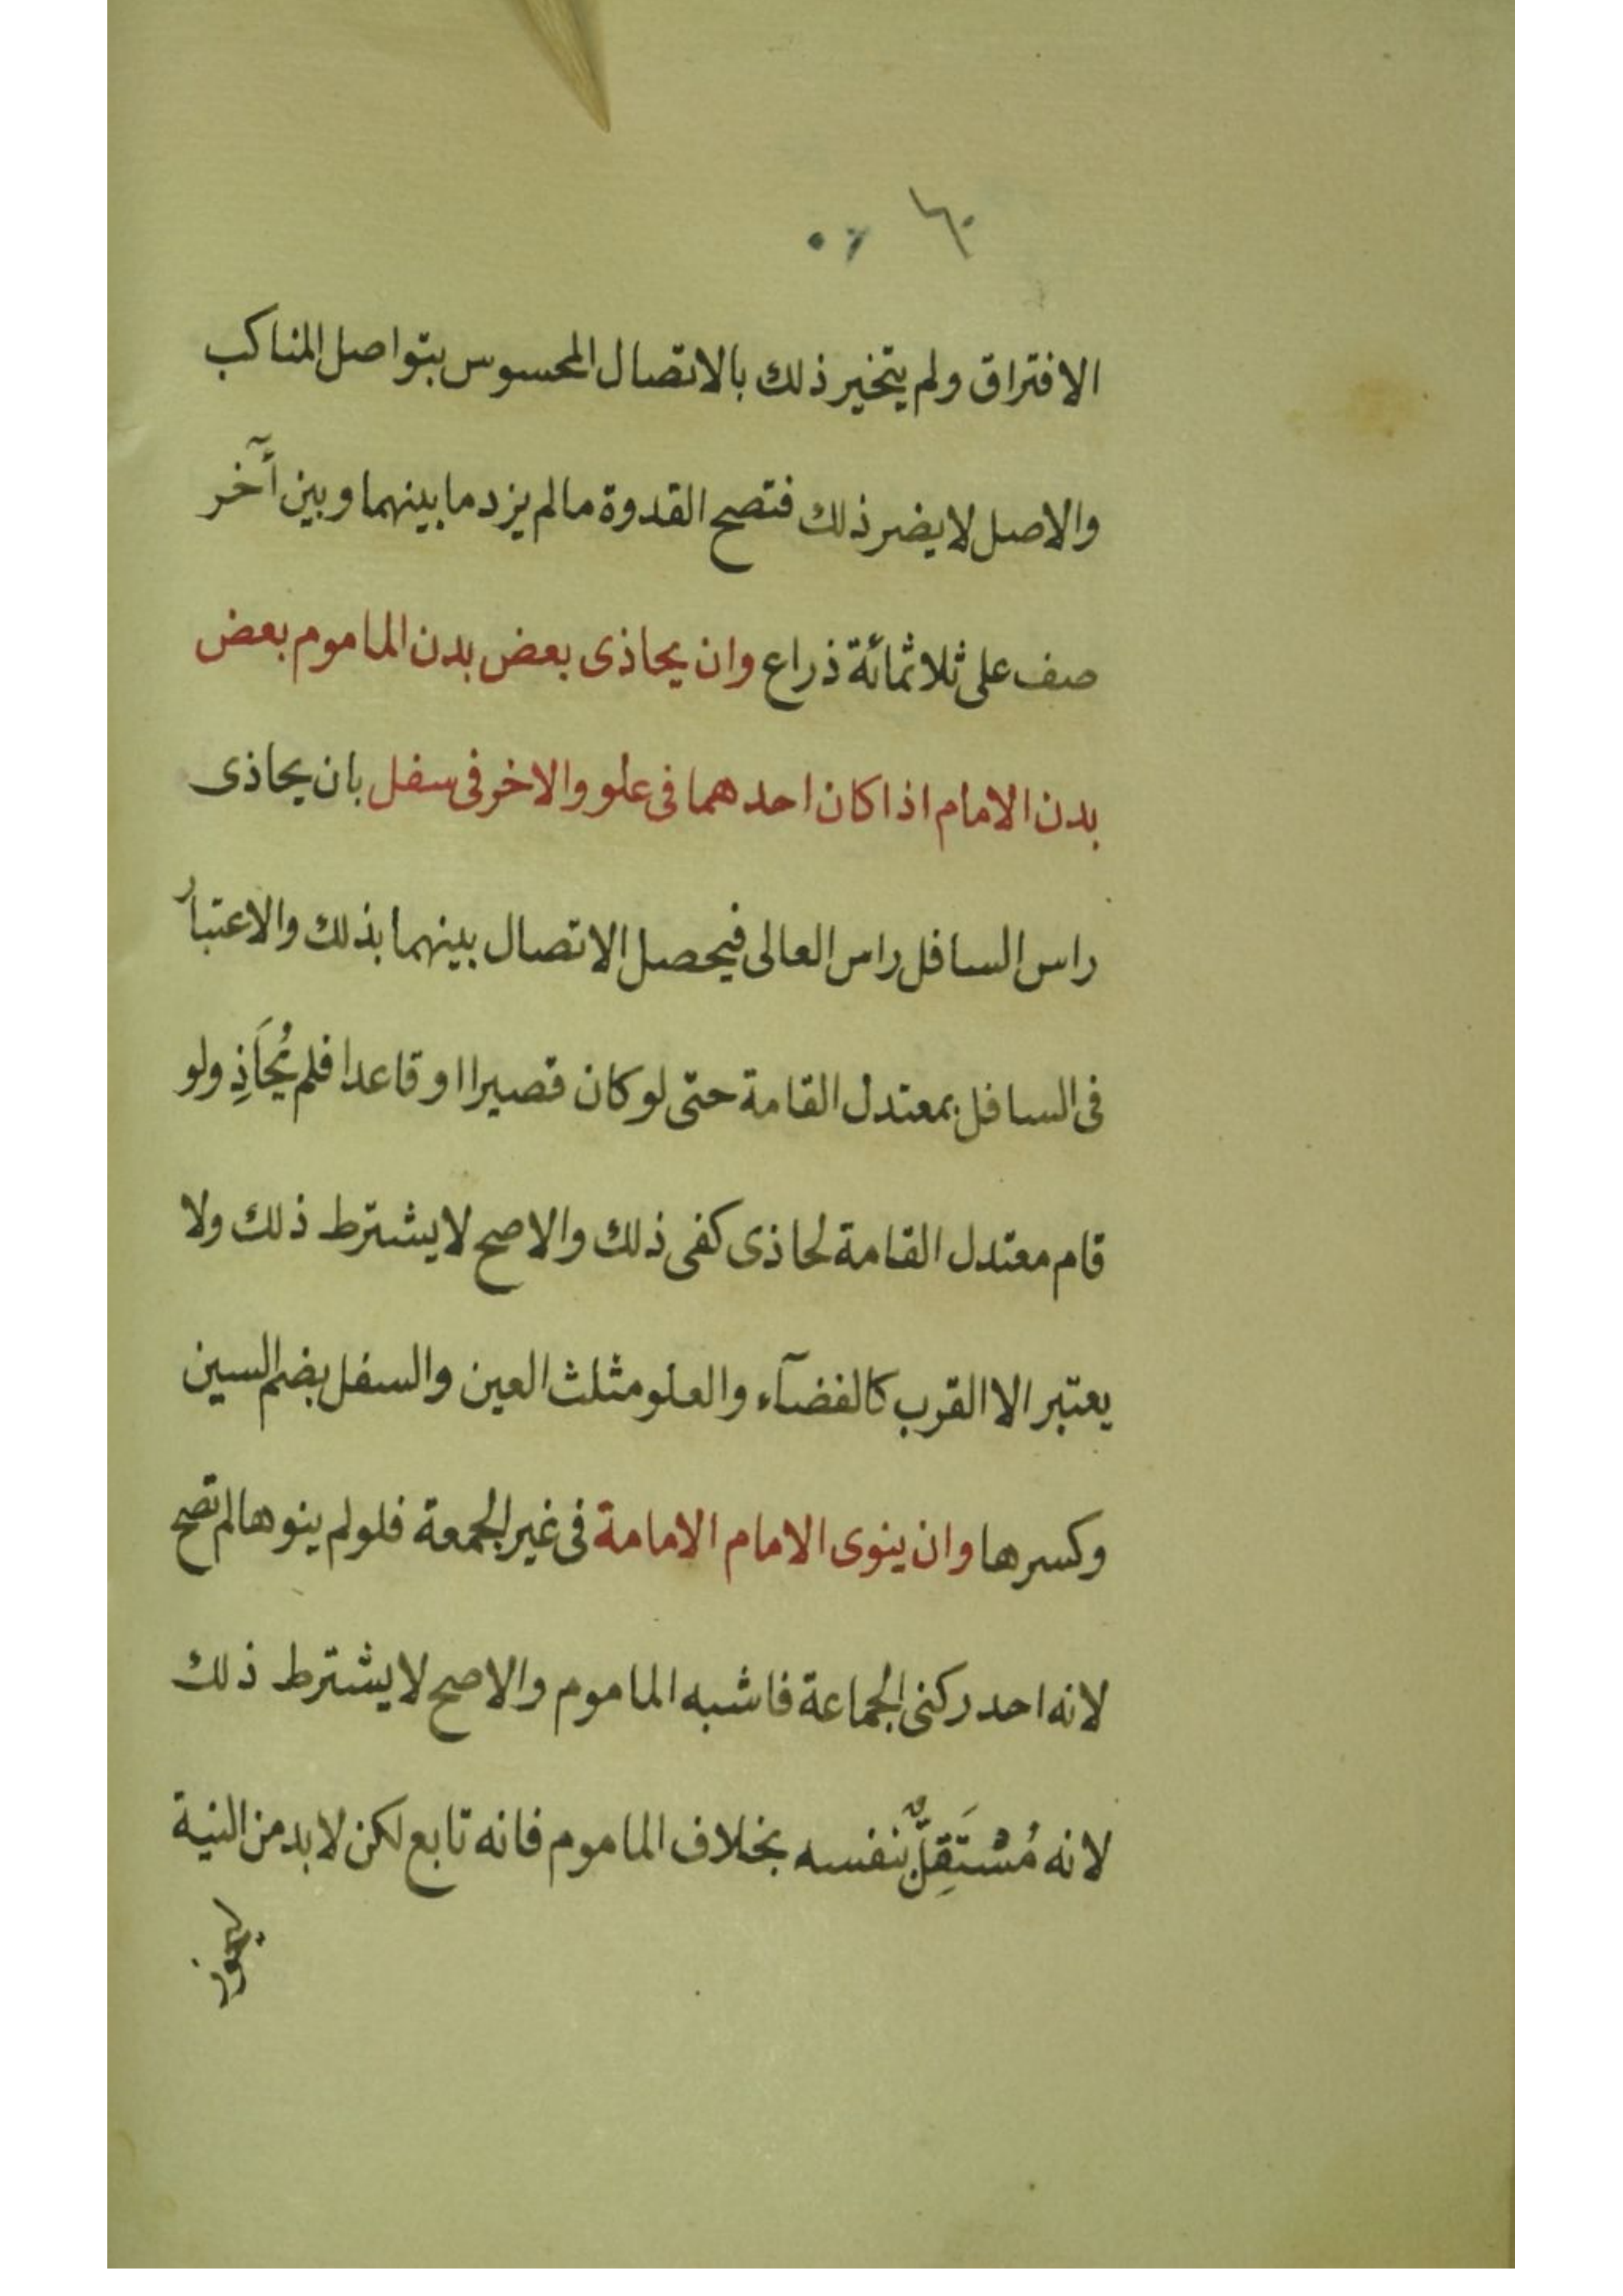 ٦٠ ٥٦
الافتراق ولم يتخير ذلك بالاتصال المحسوس بتواصل المناكب
والاصل لا يضر ذلك فتصح القدوة مالم يزد ما بينهما وبين أخر
صف على ثلاثمائة ذراع وان يحاذى بعض بدن الماموم بعض
بدن الامام اذا كان احدهما فى علو والاخر فى سفل بان يحاذى
راس السافل راس العالى فيحصل الاتصال بينهما بذلك والاعتبار
فى السافل بمعتدل القامة حتى لو كان قصيرا او قاعدا فلم يُحَاَذِ ولو
قام معتدل القامة لحاذى كفى ذلك والاصح لا يشترط ذلك ولا
يعتبر الا القرب كالفضآء والعلو مثلث العين والسفل بضم السين
وكسرها وان ينوى الامام الامامة فى غير الجمعة فلو لم ينوها لم تصح
لانه احد ركنى الجماعة فاشبه الماموم والاصح لا يشترط ذلك
لانه مُسْتَقِلٌّ بنفسه بخلاف الماموم فانه تابع لكن لا بد من النية